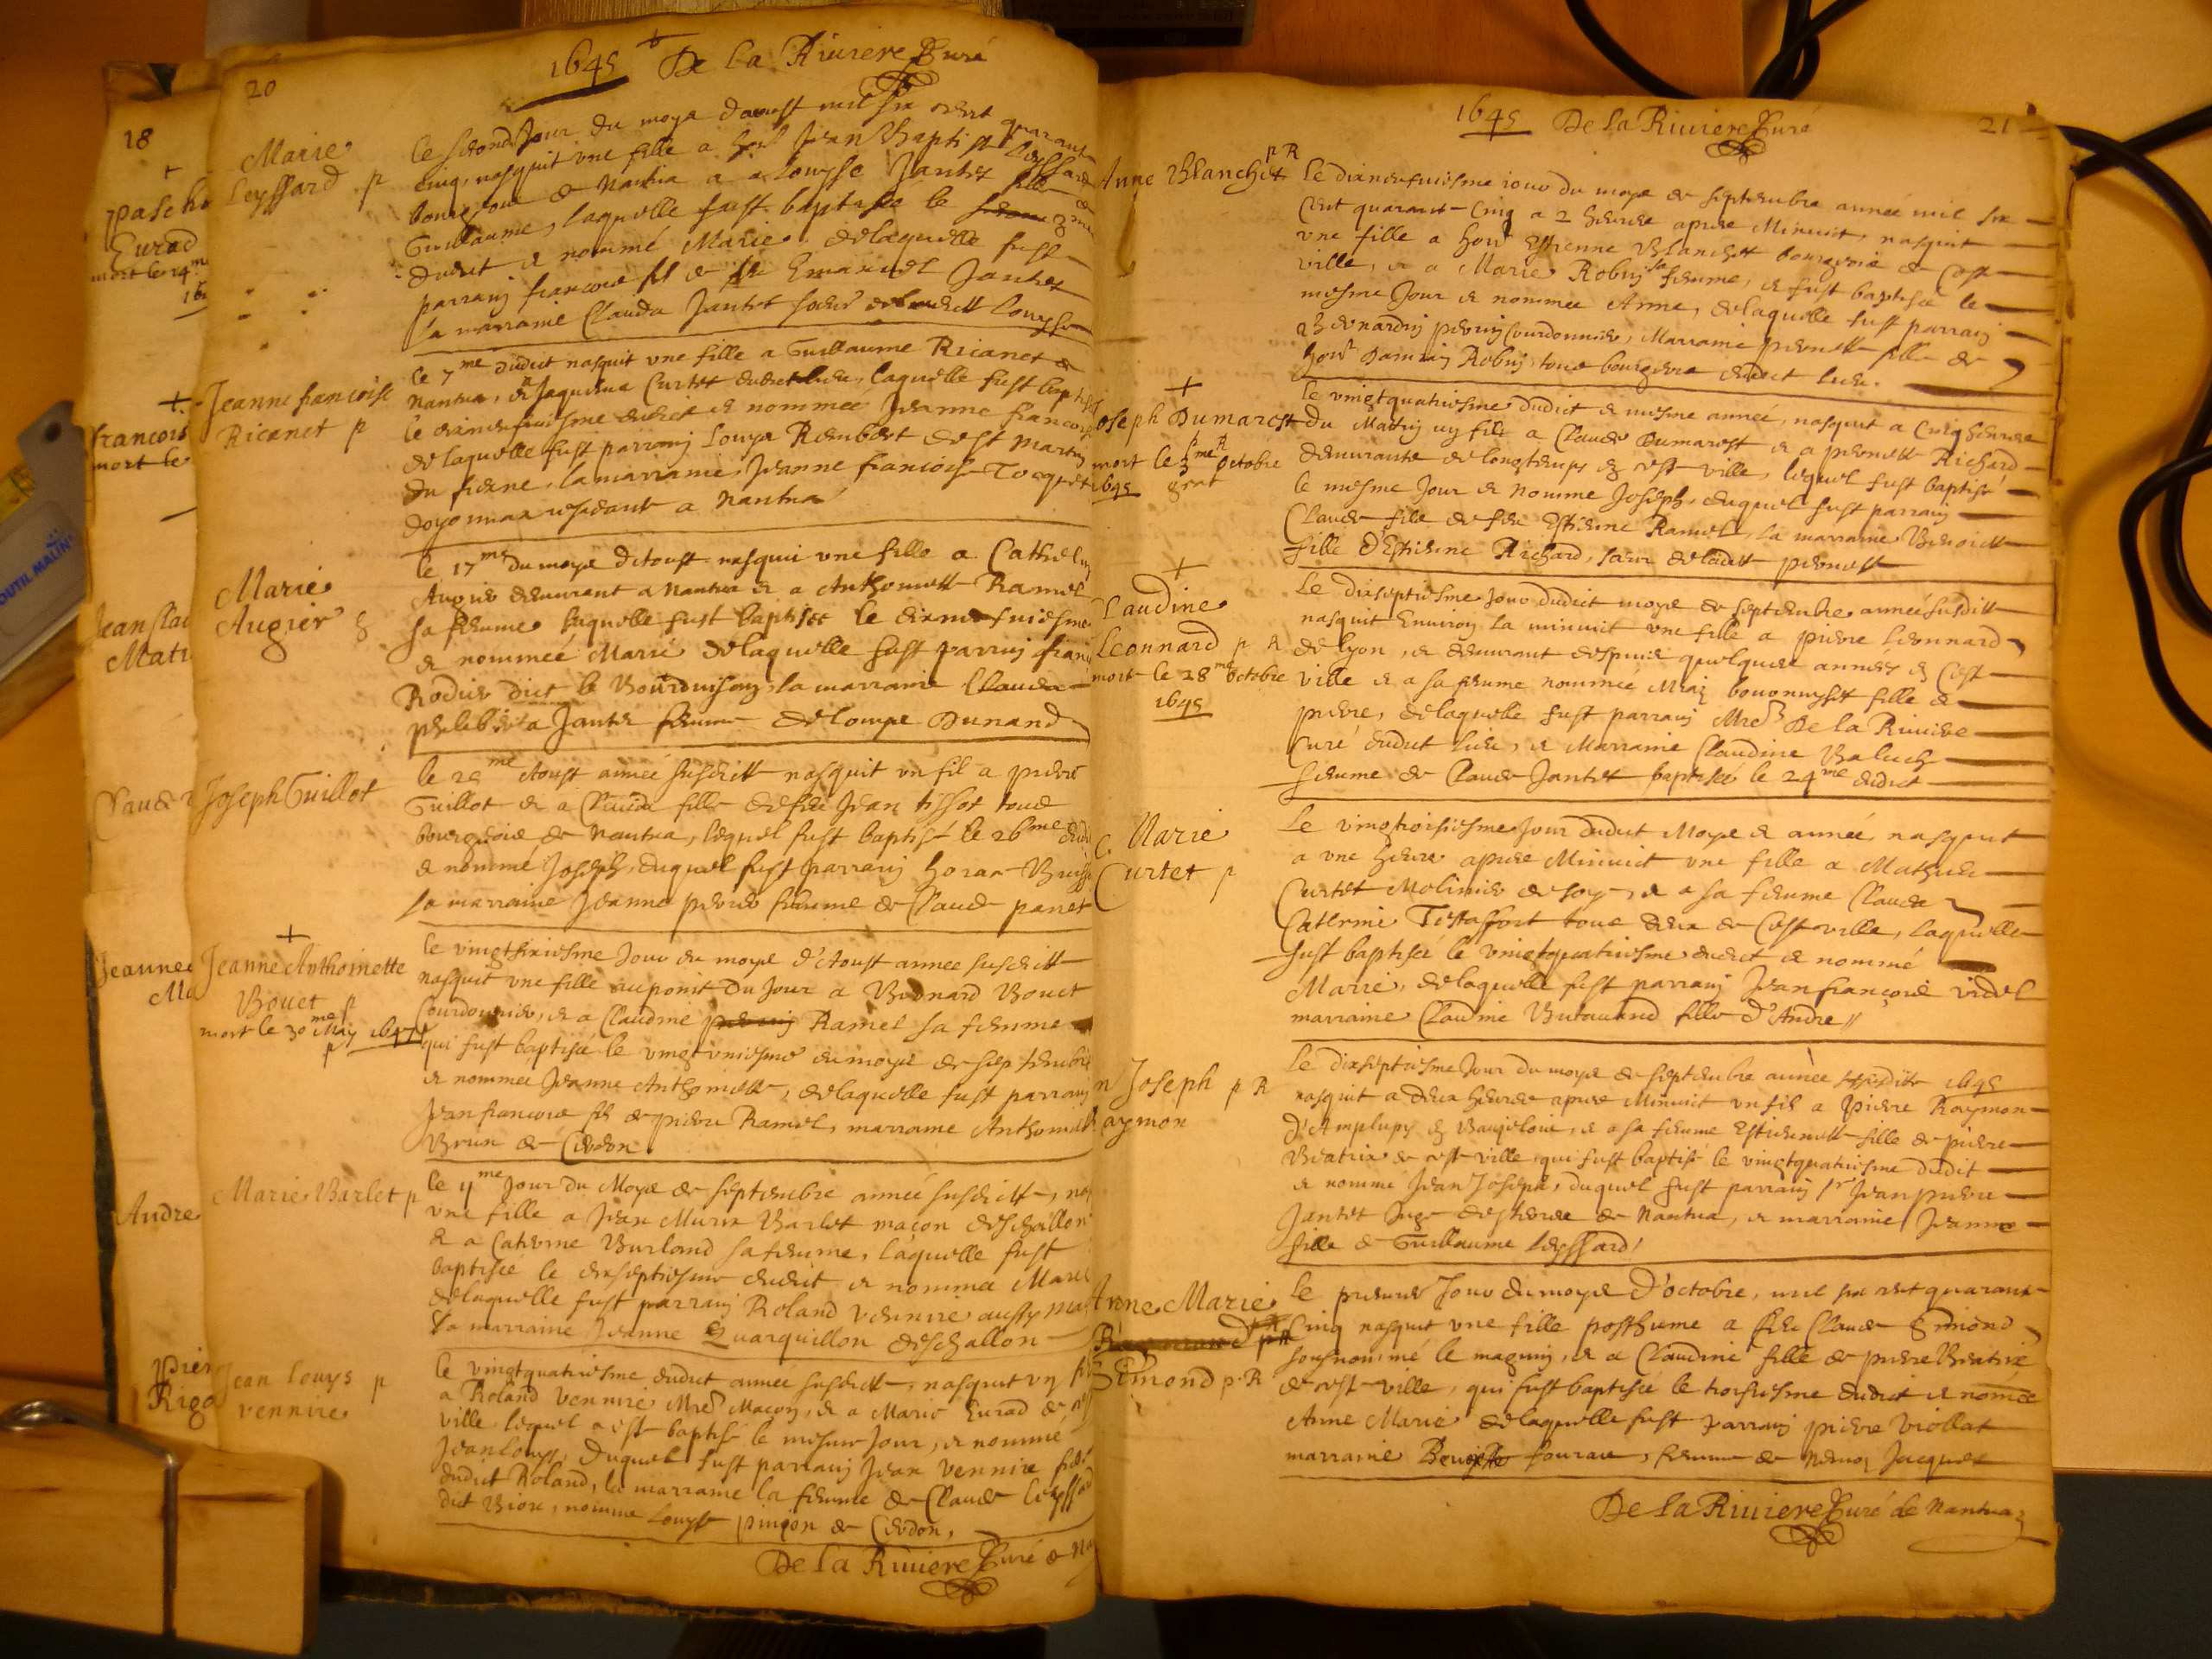 18
+
pascha
Eurad
mort le 14 m
francois
mort le
Jean Clau
Mati
Claude
Jeanne
Ma
Andre
Pier
Rigo
OUTIL MALIN
20
1645 De la Riviere Curé
Marie
Leyssard p
le second Jour du moys daoust mil six cent quarant
cinq, nasquit une fille a hon Jean Baptiste Leyssard
bourgeois de Nantua et a Louyse Jantet fille de
Guillaume, laquelle fust baptisée le
dudict et nommé Marie, de laquelle fust
parrain francois fil de Emanuel Jantet
la marraine Clauda Jantet soeur de ladicte Louyse
+
Jeanne francoise
Ricanet p
le 7me dudict nasquit une fille a Guillaume Ricanet de
Nantua, et Jaquema Curtet dudict lieu, laquelle fust baptisée
le dixneufviesme dudict et nommée Jeanne francoise
de laquelle fust parrain Louys Rembert de St Martin
du fresne, la marraine Jeanne francoise Tocquet
doyonnax residant a Nantua
Marie
Augier
le 17me du moys d'Aoust nasqui une fille a Cathelin
Augier demeurant a Nantua et a Anthoinette Ramel
sa femme laquelle fust baptisée le dixneufviesme
et nommée Marie de laquelle fust parrain
Rodier dict le Bourduison, la marraine Clauda
philiberta Jantet femme de Louys Dunand
Joseph Guillot
le 25me Aoust année susdicte nasquit un fil a pierre
Guillot et a Clauda fille de feu Jean tissot tous
bourgeois de Nantua, lequel fust baptisé le 26me dudi
et nommé Joseph, duquel fust parrain
la marraine Jeanne perrier femme de Claude panet
+
Jeanne Anthoinette
Bouet p
mort le 30me May 1647
p
le vingtsixiesme Jour du moys d'Aoust année susdicte
nasquit une fille au point du Jour a Bernard Bouet
Courdonnier, et a Claudine Ramel sa femme
qui fust baptisée le vingtuniesme du moys de septembre
et nommée Jeanne Anthoinette, de laquelle fust parrain
Jean francois fil de pierre Ramel, marraine Anthoinette
Brun de Cerdon
Marie Barlet p
le me Jour du Moys de septembre année susdicte, nas
une fille a Jean Barlet maçon deschallon
et a Caterine Burland sa femme, laquelle fust
baptisée le dixseptiesme dudict et nommée Marie
de laquelle fust parrain Roland vennire aussy ma
la marraine Jeanne Quarquillon deschallon
Jean Louys p
vennire
le vingtquatriesme dudict année susdicte, nasquit un fil
a Roland vennire Mre Maçon, et a Marie Eurad de cest
ville lequel a est baptisé le mesme Jour, et nommé
Jean Louys, duquel fust parrain Jean vennire
dudict Roland, la marraine la femme de Claude Leyssard
dict, nommé Louyse pinçon de Cerdon,
De la Riviere Curé de Na
1645 De la Riviere Curé
21
Anne Blanchet p R
Le dixneufviesme jour du moys de septembre année mil six
cent quarant-Cinq a 2 heures apres Minuict, nasquit
une fille a honr Estienne Blanchet bourgeois de cest
ville, et a Marie Robin sa femme, et fust baptisée le
mesme Jour et nommée Anne, de laquelle fust parrain
Bernardin perrin Courdonnier, Marraine pernette fille de
honr Damian Robin, tous bourgeois dudict lieu.
+
Joseph Dumarest
p R
mort le 3me Octobre
1645
Le vingtquatriesme dudict et mesme année, nasquit a Cinq heures
du Matin un fils a Claude Dumarest et a pernette Richard
demeurants de longtemps en cest ville, lequel fust baptisé
le mesme Jour et nommé Joseph, duquel fust parrain
Claude fils de feu Estienne Ramel, la marraine Benoicte
fille d'Estienne Richard, soeur de ladicte pernette
+
Claudine
Leonnard p R
mort le 28me Octobre
1645
Le dixseptiesme Jour dudict moys de septembre année susdicte
nasquit Environ la minuict une fille a pierre Leonnard
de Lyon, et demeurant despuis quelques années en Cest
ville et a sa femme nommée fille de
pierre, de laquelle fust parrain Mre De la Riviere
Curé dudict lieu, et Marraine Claudine Baluch
femme de Claude Jantet baptisée le 24me dudict
C. Marie
Curtet p
Le vingttroisiesme Jour dudict Moys et année, nasquit
a une heure apres Minuict une fille a Mathieu
Curtet Molinier de soye, et a sa femme Clauda
Caterine tous deux de Cest ville, laquelle
fust baptisée le vingtquatriesme dudict et nommé
Marie, de laquelle fust parrain Jean françois videl
marraine Claudine Butavand fille d'Andre //
n Joseph p R
aymon
Le dixseptiesme Jour du moys de septembre année susdicte 1645
nasquit a deux heures apres Minuict un fils a pierre Raymon
d'Amplupy en Baujeloie, et a sa femme Estiennette fille de pierre
Beatrix de cest ville, qui fust baptisé le vingtquatriesme dudict
et nommé Jean Joseph, duquel fust parrain sr Jean pierre
Jantet Juge des terres de Nantua, et marraine Jeanne
fille de Guillaume Leyssard
Anne Marie
Emond p R
Le premier Jour du moys D'octobre, mil six cent quarant-
Cinq nasquit une fille posthume a feu Claude Emond
sousnommé le magnin, et a Claudine fille de pierre Beatrix
de cest ville, qui fust baptisée le troisiesme dudict et nomée
Anne Marie de laquelle fust parrain pierre viollat
marraine Benoite, femme de Jacquet
De la Riviere Curé de Nantua